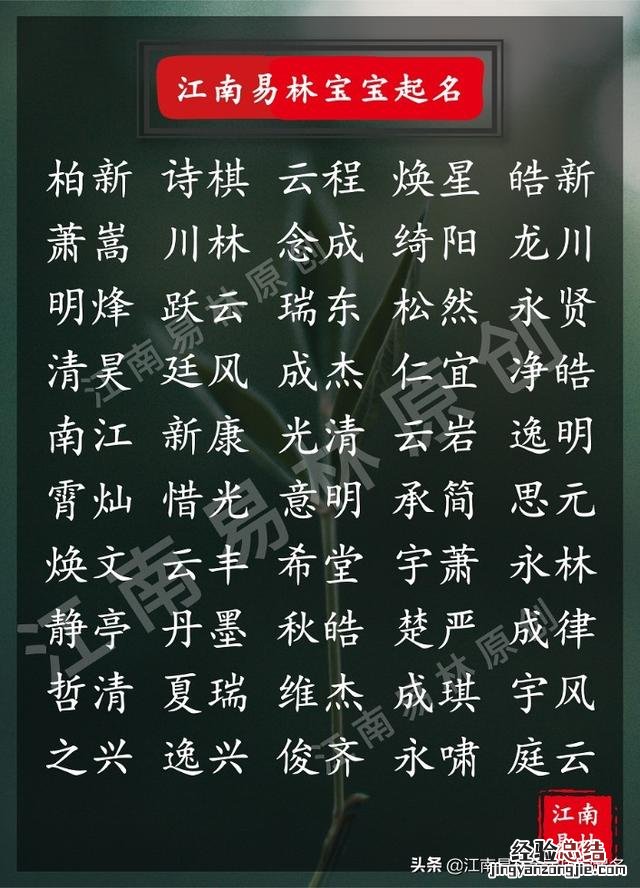 江南易林宝宝起名
柏新 诗棋 云程 焕星 皓新
萧嵩 川林 念成 绮阳 龙川
明烽 跃云 瑞东 松然 永贤
清昊 廷风 成杰 仁宜 净皓
南江 新康 光清 云岩 逸明
霄灿 惜光 意明 承简 思元
焕文 云丰 希堂 宇萧 永林
静亭 丹墨 秋皓 楚严 成律
哲清 夏瑞 维杰 成琪 宇风
之兴 逸兴 俊齐 永啸 庭云
江南易林原创
江南易林原创
江南易林原创
江南
易林
头条 @江南易
经验总结
jingyanzongjie.com